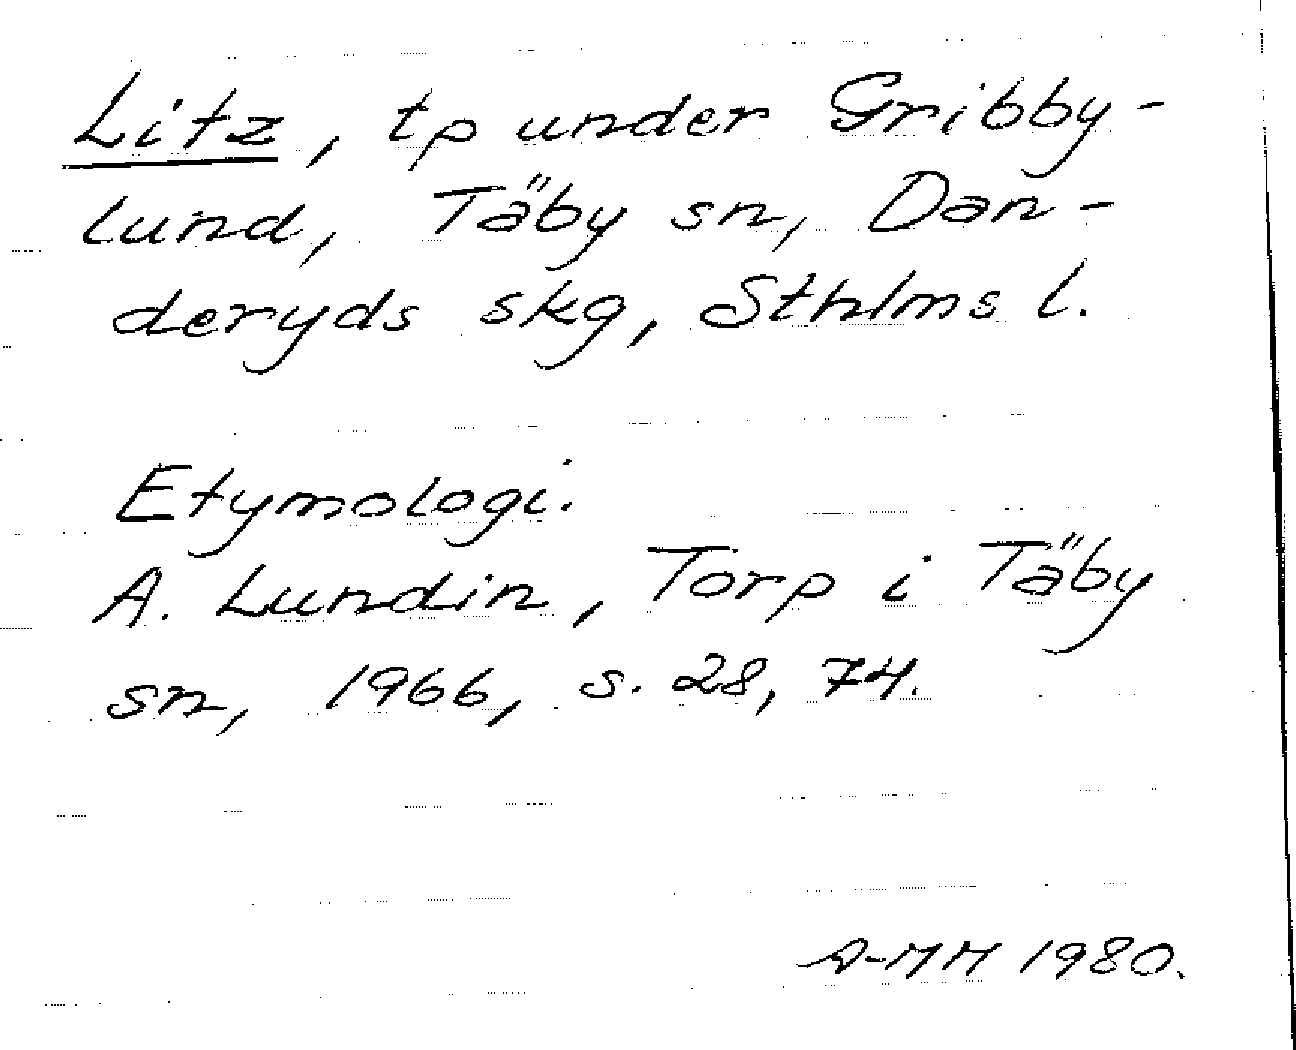 Litz, tp under Gribby-
lund, Täby sn, Dan-
deryds skg, Sthlms l.
Etymologi.
A. Lundin, Torp i Täby
sn, 1966, s. 28, 74.
A-MM 1980.